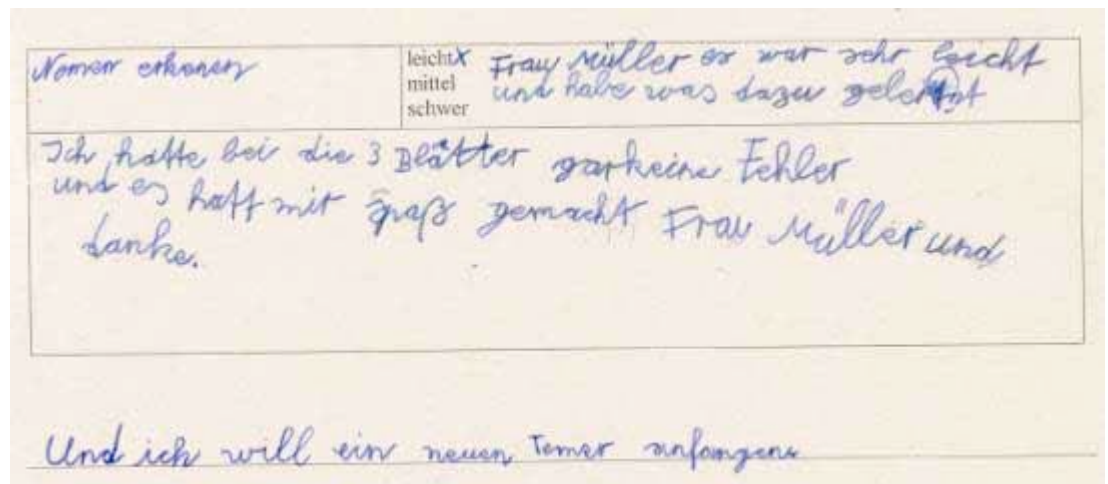 Nomen erkenen
leicht x
mittel
schwer
Frau Müller es war sehr leicht
und habe was dazu gelernt
Ich hatte bei die 3 Blätter garkeine Fehler
und es hatt mir spaß gemacht Frau Müller und
danke.
Und ich will ein neuen Temer anfangen